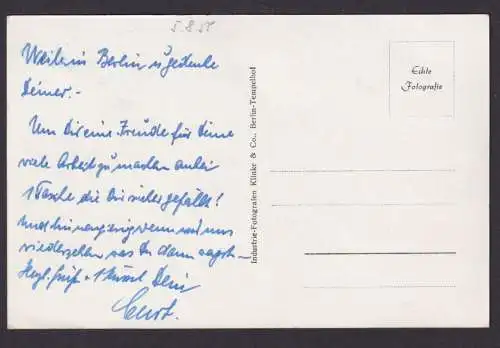 5.8.51
Weile in Berlin u. gedenke
Deiner. -
Um Dir eine Freude für Deine
viele Arbeit zu machen anbei
1 Tasche die Dir sicher gefällt!
wenn wir uns
wiedersehen was Du dann sagst -
Herzl. + 1 Dein
Industrie-Fotografen Klinke & Co., Berlin-Tempelhof
Echte
Fotografie